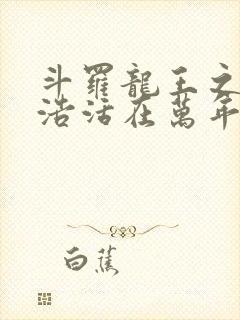 斗羅龍王之
浩活在萬年
白蕉